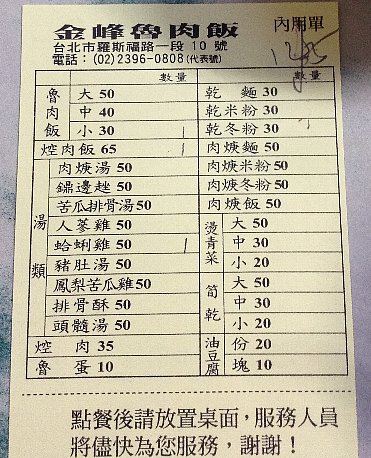 金峰魯肉飯
內用單
台北市羅斯福路一段 10 號
電話：(02)2396-0808(代表號)
125
數量 數量
魯肉飯 大 50
中 40
小 30
焢肉飯 65
湯類 肉焿湯 50
錦邊趖 50
苦瓜排骨湯50
人蔘雞 50
蛤蜊雞 50
豬肚湯 50
鳳梨苦瓜雞50
排骨酥 50
頭髓湯 50
焢肉 35
魯蛋 10
乾麵 30
乾米粉 30
乾冬粉 30
肉焿麵 50
肉焿米粉 50
肉焿冬粉 50
肉焿飯 50
燙青菜 大 50
中 30
小 20
筍乾 大 50
中 30
小 20
油豆腐 份 20
塊 10
點餐後請放置桌面，服務人員
將儘快為您服務，謝謝！